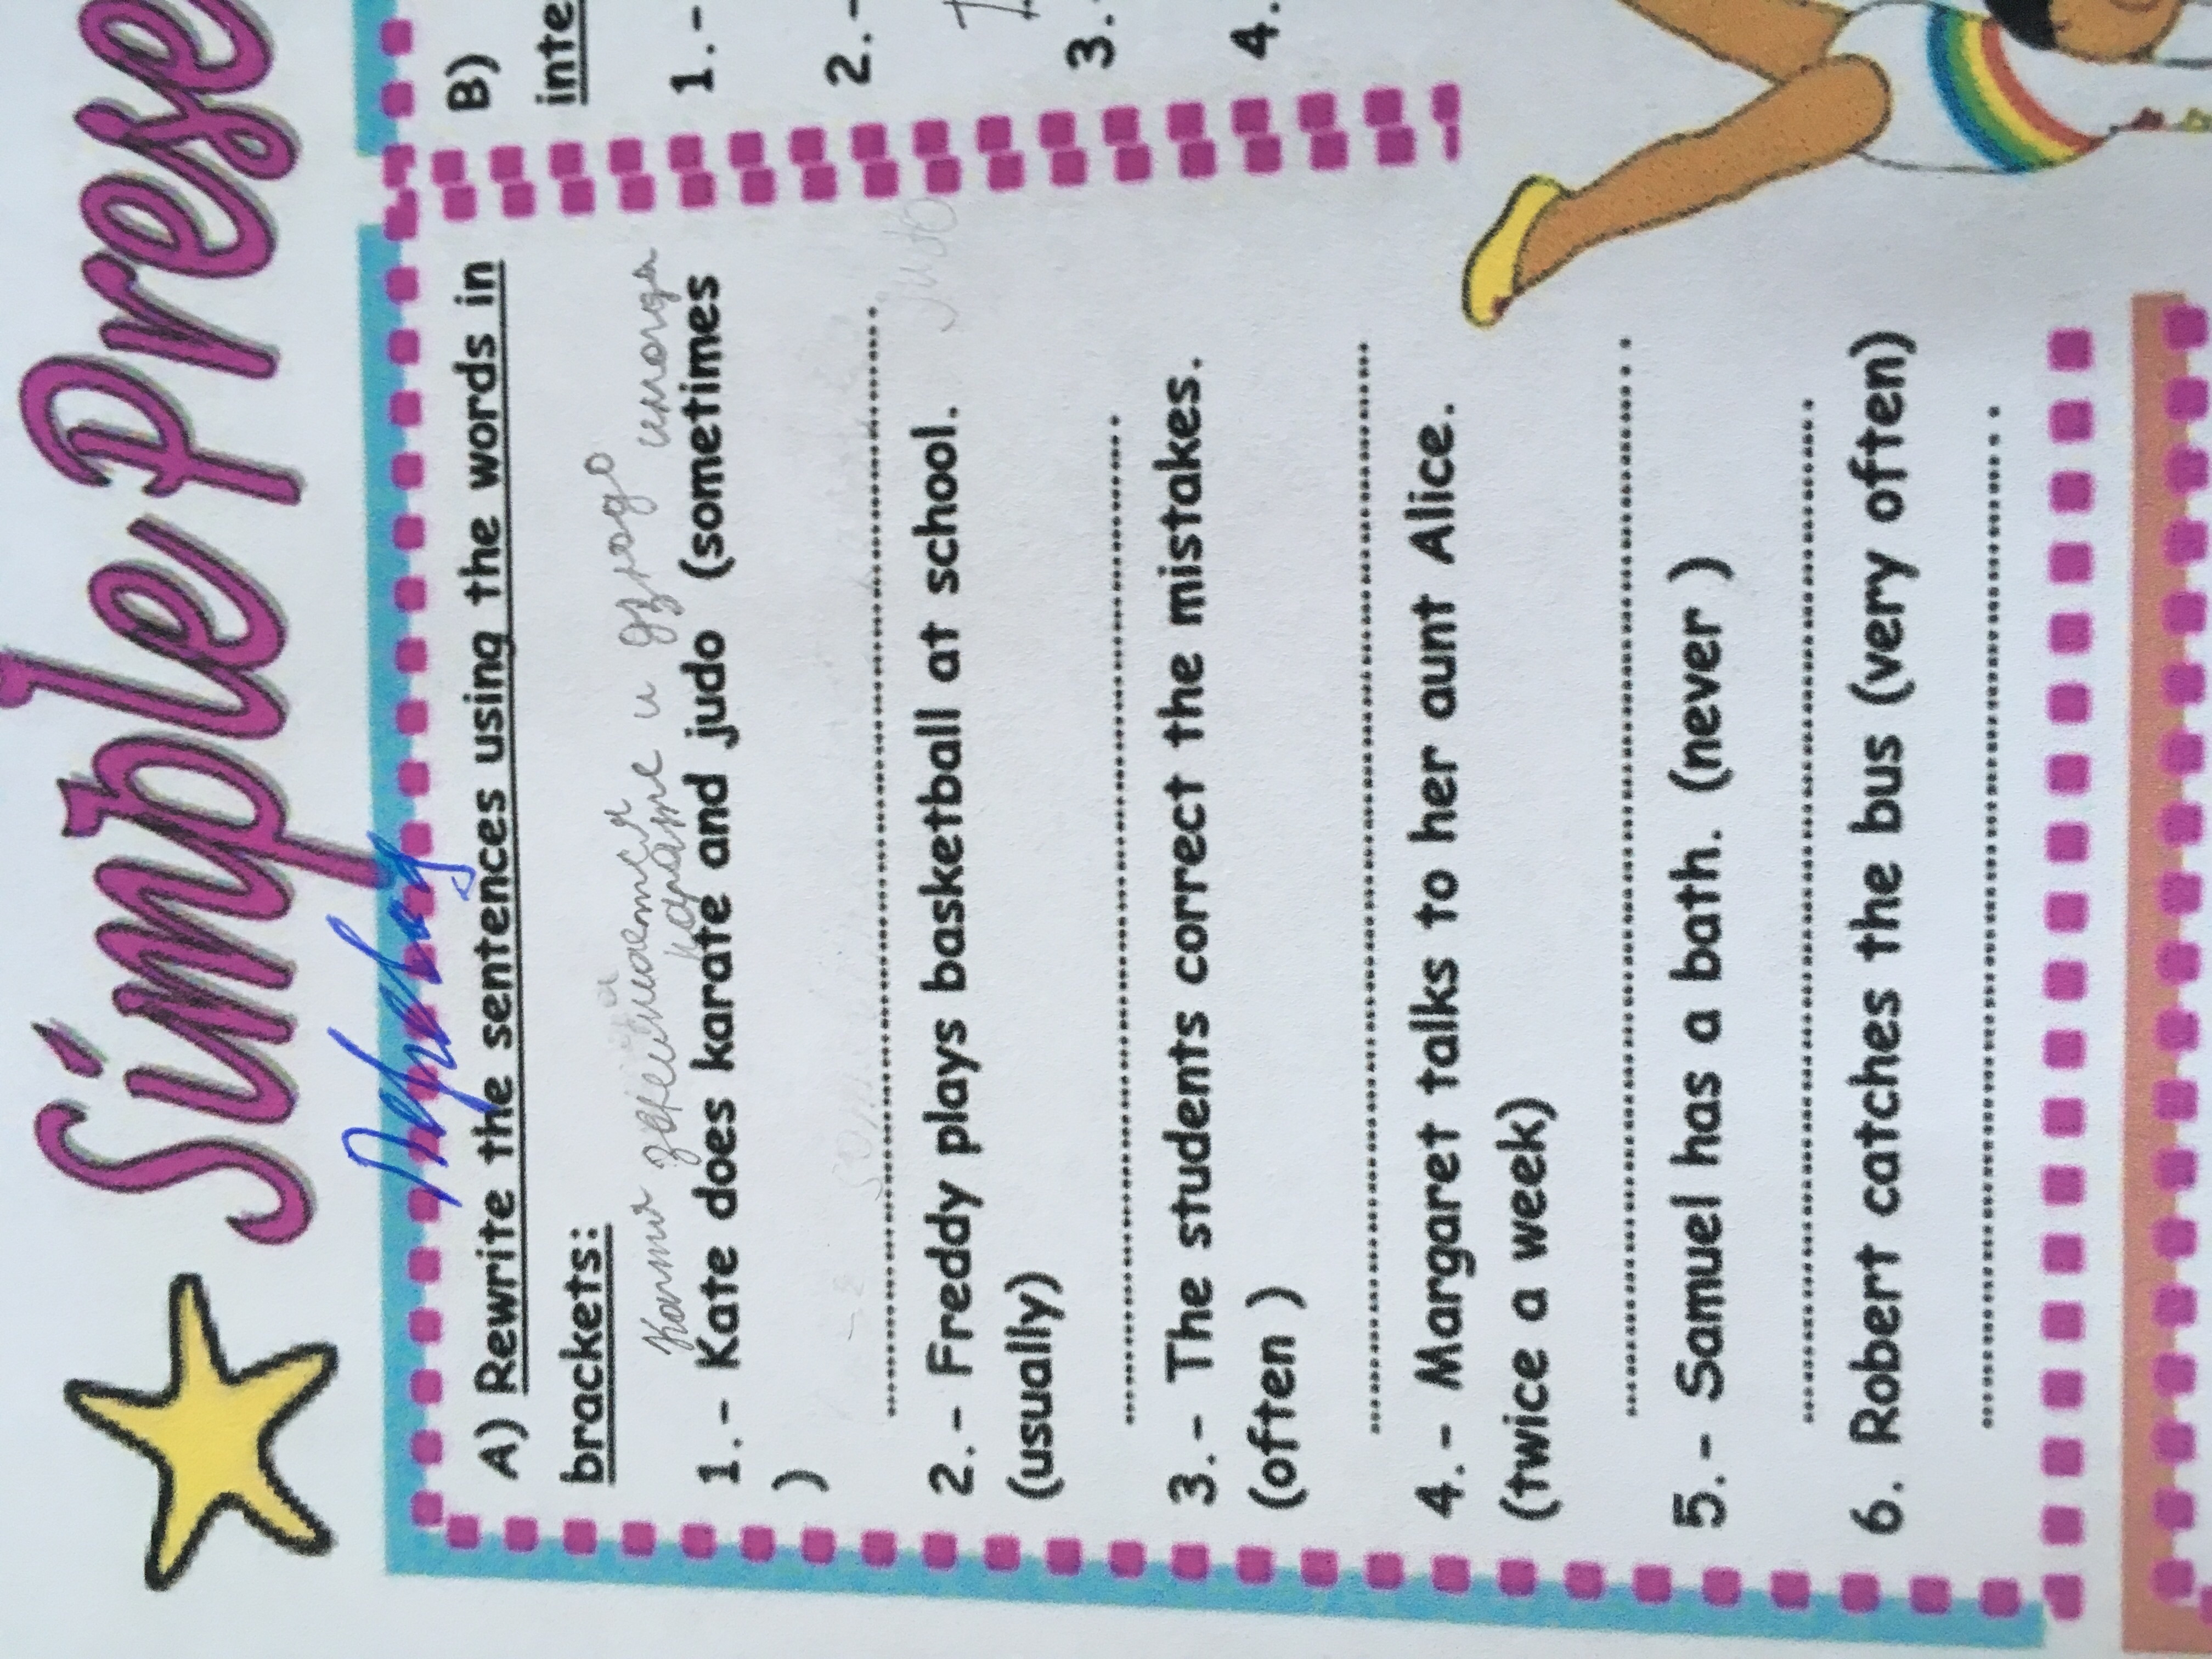 Simple Prese
A) Rewrite the sentences using the words in
brackets:
Катя занимается
карате и дзюдо иногда
1.- Kate does karate and judo (sometimes
)
2.- Freddy plays basketball at school.
(usually)
3.- The students correct the mistakes.
(often )
4.- Margaret talks to her aunt Alice.
(twice a week)
5.- Samuel has a bath. (never )
6. Robert catches the bus (very often)
B)
inte
1.-
2.-
3.
4.